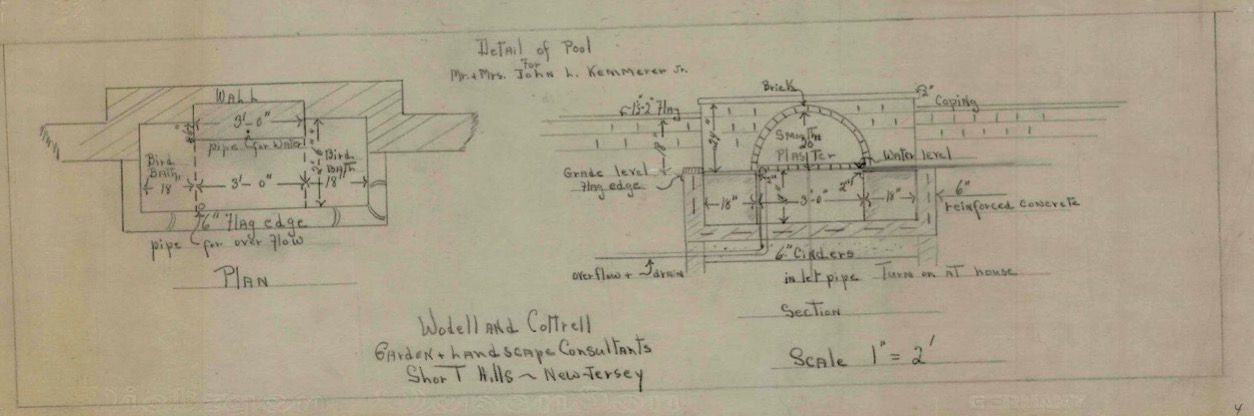 Detail of Pool
For
Mr. + Mrs. John L. Kemmerer Jr.
Wall
3'-0"
pipe for water
Bird
Bath
18"
3'-0"
Bird
Bath
18"
6" Flag edge
pipe for over flow
Plan
Brick
2"
Coping
1½-2" Flag
18"
24"
Smooth
20"
Plaster
Water level
Grade level
Flag edge
2"
18"
3'-0"
18"
6"
reinforced concrete
6" Cinders
overflow + drain
inlet pipe Turn on at house
Section
Wodell and Cottrell
Garden + Landscape Consultants
Short Hills ~ New-Jersey
Scale 1" = 2'
GERMANY
4